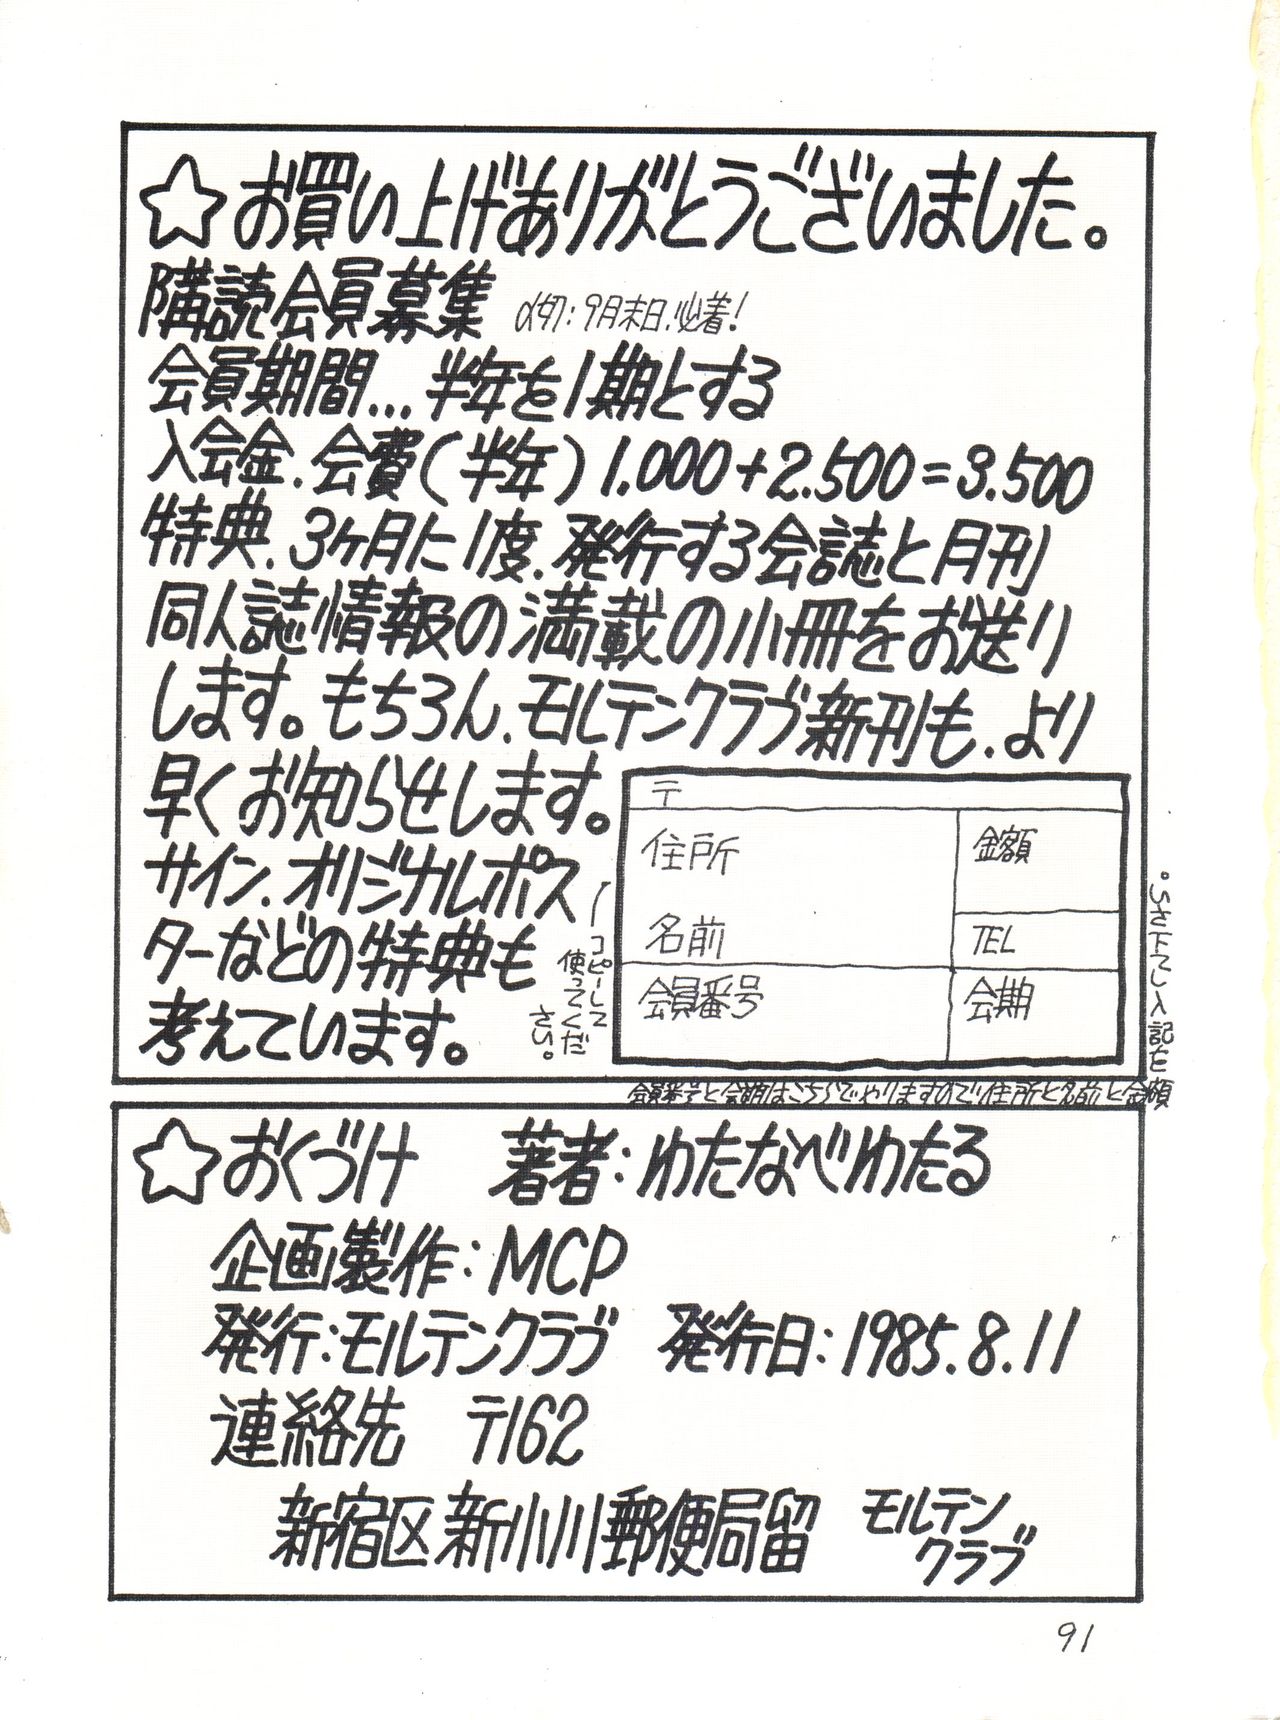 ☆お買い上げありがとうございました。
購読会員募集 〆切:9月末日.必着!
会員期間...半年を1期とする
入会金.会費(半年)1.000+2.500=3.500
特典.3ヶ月に1度.発行する会誌と月刊
同人誌情報の満載の小冊をお送り
します。もちろん.モルテンクラブ新刊も.より
早くお知らせします。
サイン.オリジナルポス
ターなどの特典も
考えています。
コピーして
使ってくだ
さい。
〒
住所
金額
名前
TEL
会員番号
会期
会員番号と会期はこちらでやりますので住所と名前と金額
を記入して下さい。
☆おくづけ 著者:わたなべわたる
企画製作:MCP
発行:モルテンクラブ 発行日:1985.8.11
連絡先 〒162
新宿区新小川郵便局留 モルテン
クラブ
91